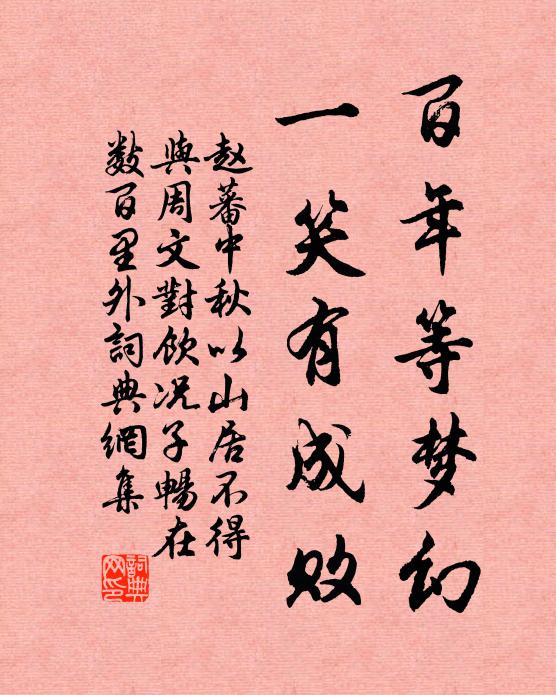 百年等梦幻
一笑有成败
赵蕃中秋以山居不得
與周文對飲况子暢在
数百里外詞典網集
詞典网印